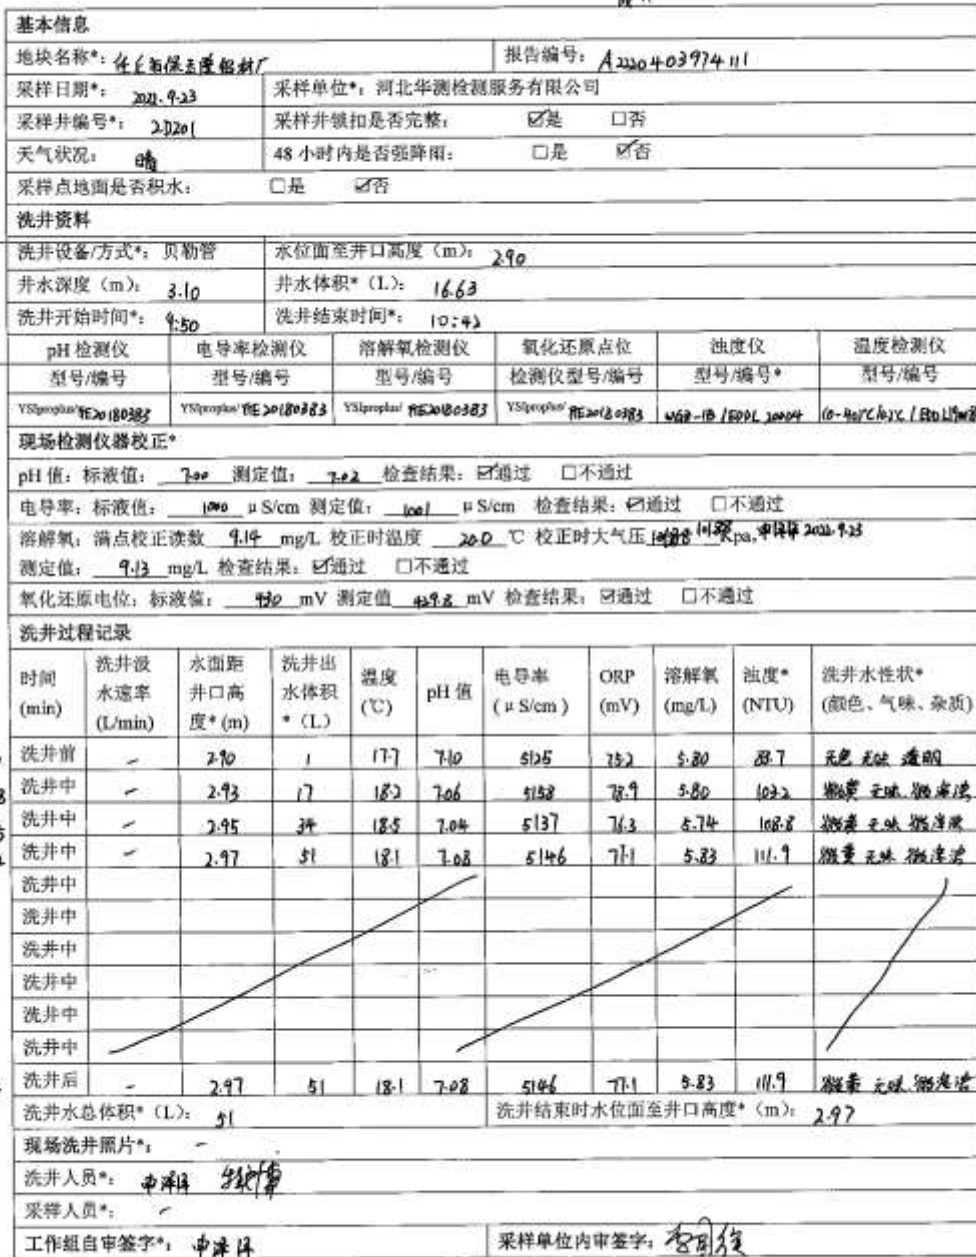 基本信息
地块名称*: 任丘市保玉隆铝材厂 报告编号: A2220403974111
采样日期*: 2022.9.23 采样单位*: 河北华测检测服务有限公司
采样井编号*: 2D201 采样井锁扣是否完整: ☑是 □否
天气状况: 晴 48 小时内是否强降雨: □是 ☑否
采样点地面是否积水: □是 ☑否
洗井资料
洗井设备/方式*: 贝勒管 水位面至井口高度(m): 2.90
井水深度(m): 3.10 井水体积*(L): 16.63
洗井开始时间*: 9:50 洗井结束时间*: 10:42
pH 检测仪 电导率检测仪 溶解氧检测仪 氧化还原点位 浊度仪 温度检测仪
型号/编号 型号/编号 型号/编号 检测仪型号/编号 型号/编号* 型号/编号
YSIproplus/ YSIproplus/ YSIproplus/ YSIproplus/
现场检测仪器校正*
pH 值: 标液值: 7.00 测定值: 7.02 检查结果: ☑通过 □不通过
电导率: 标液值: 1000 μS/cm 测定值: 1001 μS/cm 检查结果: ☑通过 □不通过
溶解氧: 满点校正读数 9.14 mg/L 校正时温度 20.0 ℃ 校正时大气压 Kpa, 申泽泽 2022.9.23
测定值: 9.13 mg/L 检查结果: ☑通过 □不通过
氧化还原电位: 标液值: 430 mV 测定值 429.8 mV 检查结果: ☑通过 □不通过
洗井过程记录
时间(min) 洗井汲水速率(L/min) 水面距井口高度*(m) 洗井出水体积*(L) 温度(℃) pH 值 电导率(μS/cm) ORP(mV) 溶解氧(mg/L) 浊度*(NTU) 洗井水性状*(颜色、气味、杂质)
洗井前 - 2.90 1 17.7 7.10 5125 75.2 5.80 88.7 无色 无味 透明
洗井中 - 2.93 17 18.2 7.06 5158 78.9 5.80 103.2 微黄 无味 微浑浊
洗井中 - 2.95 34 18.5 7.04 5137 76.3 5.74 108.8 微黄 无味 微浑浊
洗井中 - 2.97 51 18.1 7.08 5146 77.1 5.83 111.9 微黄 无味 微浑浊
洗井中
洗井中
洗井中
洗井中
洗井中
洗井中
洗井后 - 2.97 51 18.1 7.08 5146 77.1 5.83 111.9 微黄 无味 微浑浊
洗井水总体积*(L): 51 洗井结束时水位面至井口高度*(m): 2.97
现场洗井照片*: -
洗井人员*: 申泽泽
采样人员*: -
工作组自审签字*: 申泽泽 采样单位内审签字: